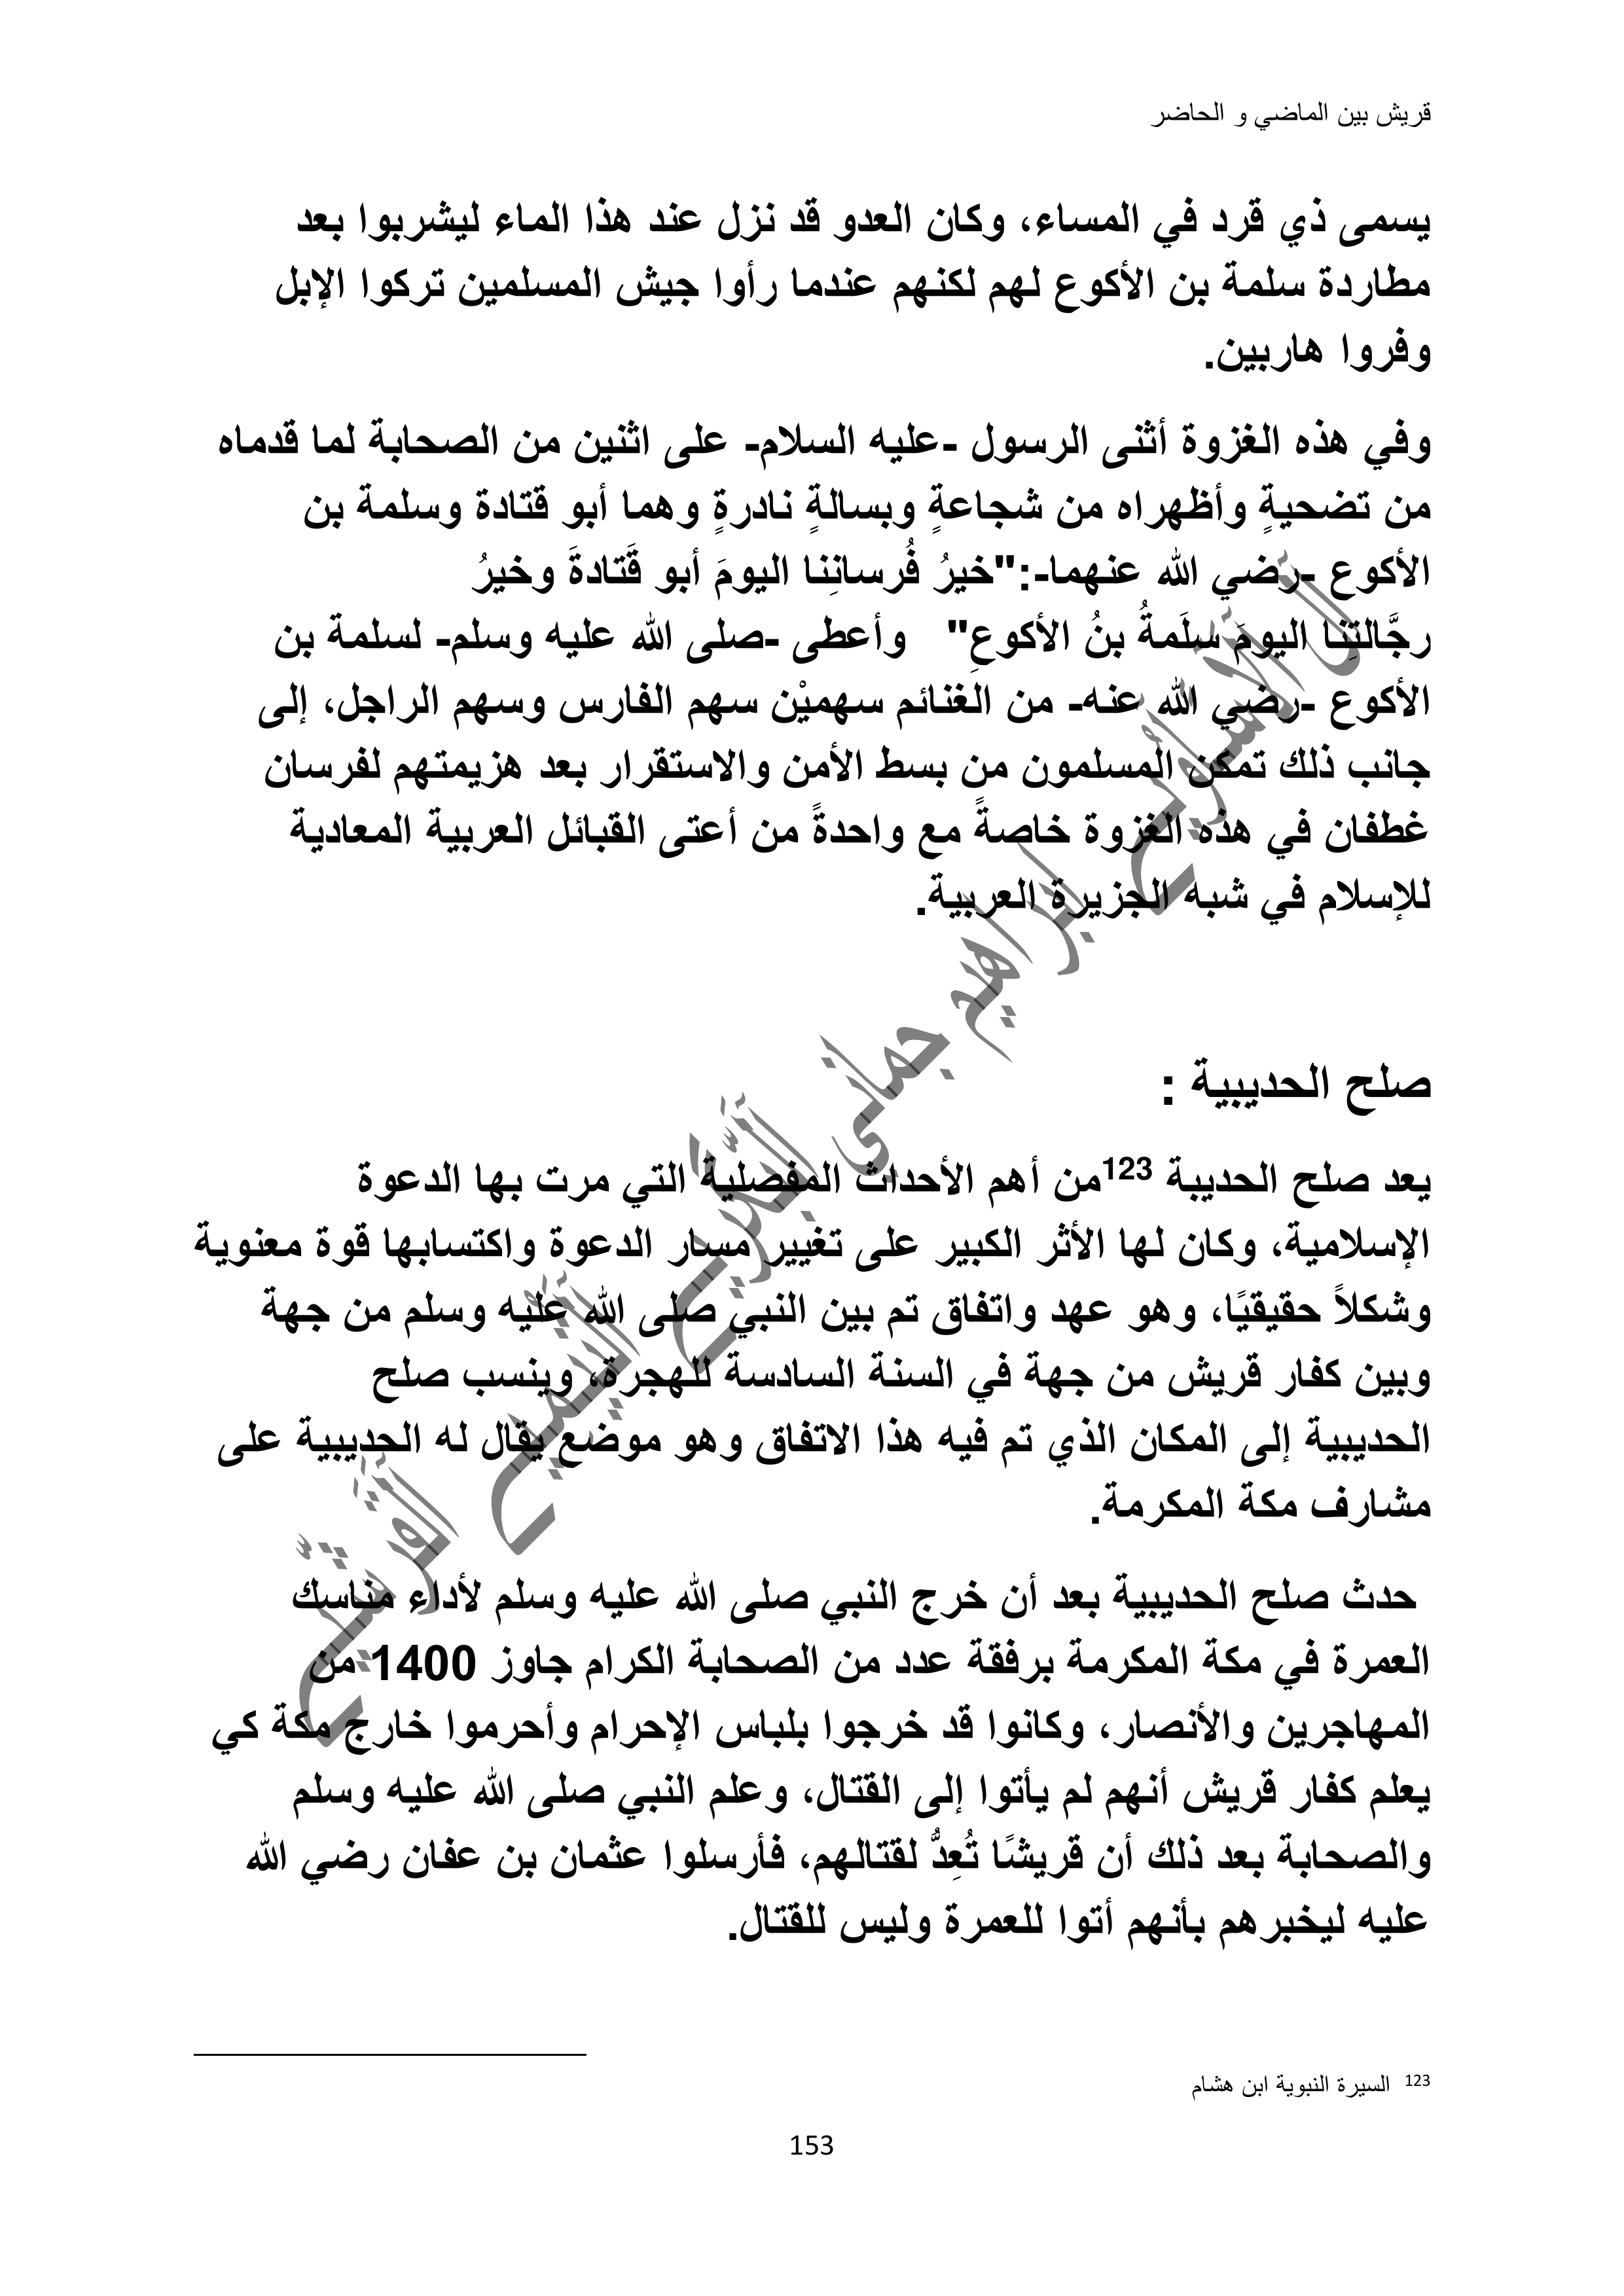 قريش بين الماضي و الحاضر
يسمى ذي قرد في المساء، وكان العدو قد نزل عند هذا الماء ليشربوا بعد
مطاردة سلمة بن الأكوع لهم لكنهم عندما رأوا جيش المسلمين تركوا الإبل
وفروا هاربين.
وفي هذه الغزوة أثنى الرسول -عليه السلام- على اثنين من الصحابة لما قدماه
من تضحيةٍ وأظهراه من شجاعةٍ وبسالةٍ نادرةٍ وهما أبو قتادة وسلمة بن
الأكوع -رضي الله عنهما-:"خيرُ فُرسانِنا اليومَ أبو قَتادةَ وخيرُ
رجَّالتِنا اليومَ سلَمةُ بنُ الأكوعِ" وأعطى -صلى الله عليه وسلم- لسلمة بن
الأكوع -رضي الله عنه- من الغنائم سهميْن سهم الفارس وسهم الراجل، إلى
جانب ذلك تمكن المسلمون من بسط الأمن والاستقرار بعد هزيمتهم لفرسان
غطفان في هذه الغزوة خاصةً مع واحدةً من أعتى القبائل العربية المعادية
للإسلام في شبه الجزيرة العربية.
صلح الحديبية :
يعد صلح الحديبة 123من أهم الأحداث المفصلية التي مرت بها الدعوة
الإسلامية، وكان لها الأثر الكبير على تغيير مسار الدعوة واكتسابها قوة معنوية
وشكلاً حقيقيًا، وهو عهد واتفاق تم بين النبي صلى الله عليه وسلم من جهة
وبين كفار قريش من جهة في السنة السادسة للهجرة، وينسب صلح
الحديبية إلى المكان الذي تم فيه هذا الاتفاق وهو موضع يقال له الحديبية على
مشارف مكة المكرمة.
حدث صلح الحديبية بعد أن خرج النبي صلى الله عليه وسلم لأداء مناسك
العمرة في مكة المكرمة برفقة عدد من الصحابة الكرام جاوز 1400 من
المهاجرين والأنصار، وكانوا قد خرجوا بلباس الإحرام وأحرموا خارج مكة كي
يعلم كفار قريش أنهم لم يأتوا إلى القتال، وعلم النبي صلى الله عليه وسلم
والصحابة بعد ذلك أن قريشًا تُعِدُّ لقتالهم، فأرسلوا عثمان بن عفان رضي الله
عليه ليخبرهم بأنهم أتوا للعمرة وليس للقتال.
123 السيرة النبوية ابن هشام
153